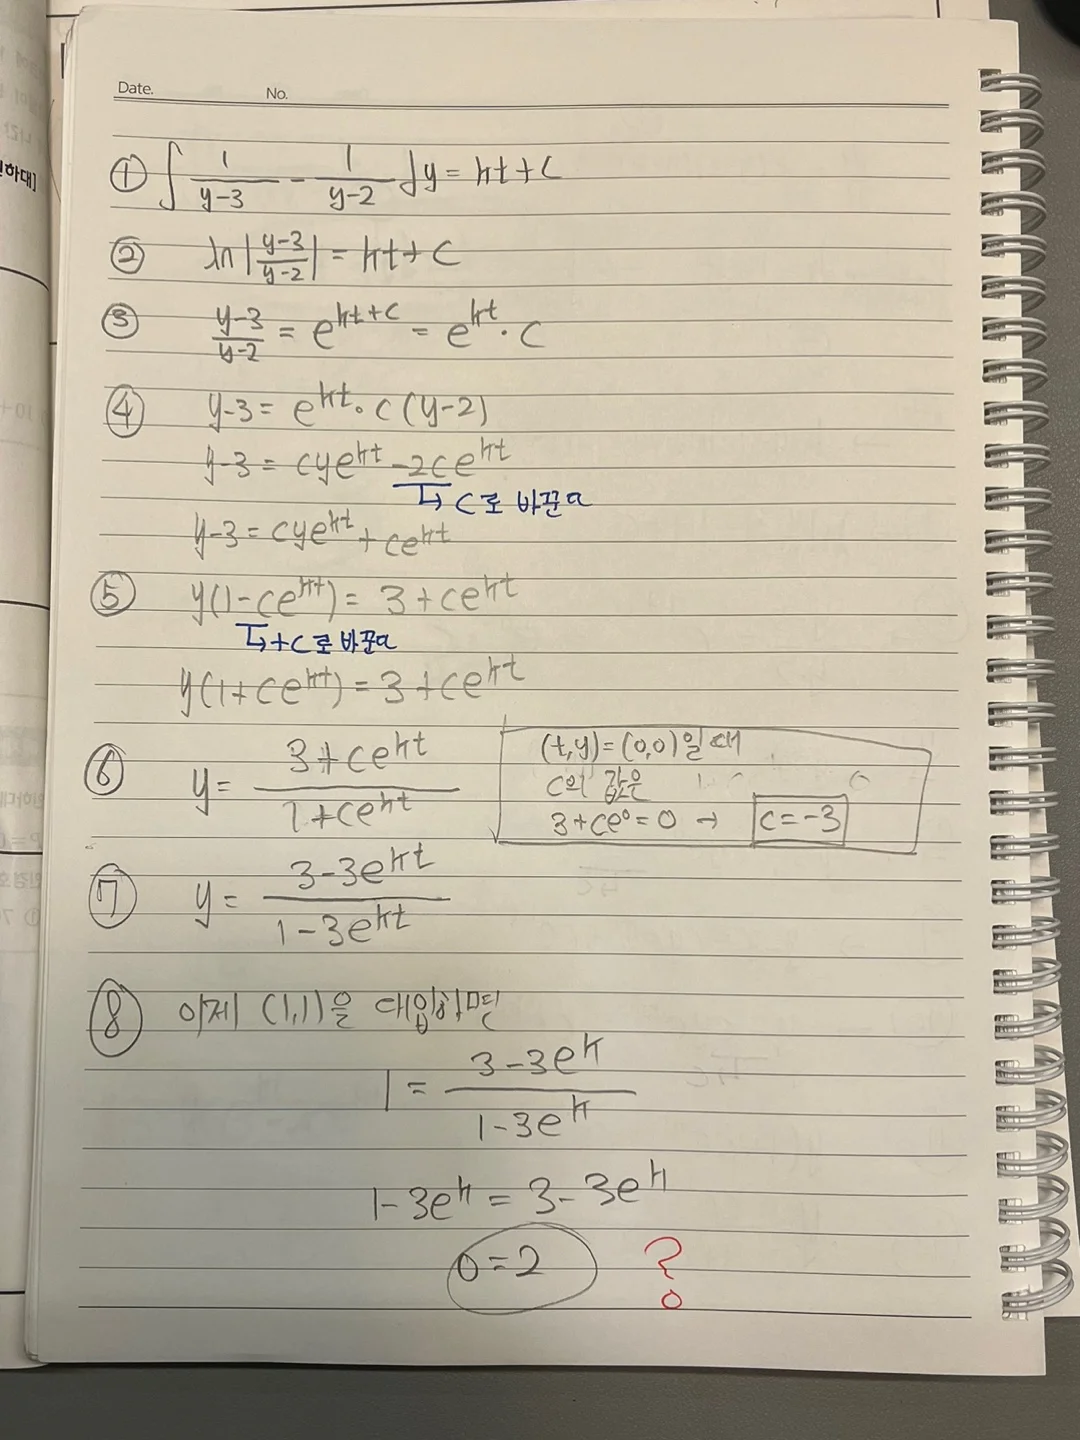 Date.
No.
① ∫ 1/(y-3) - 1/(y-2) dy = kt+C
② ln|(y-3)/(y-2)| = kt+C
③ (y-3)/(y-2) = e^(kt+C) = e^(kt)·C
④ y-3 = e^(kt)·C(y-2)
y-3 = cye^(kt) -2ce^(kt)
↳ C로 바꾼다
y-3 = cye^(kt) + ce^(kt)
⑤ y(1-ce^(kt)) = 3+ce^(kt)
↳ +C로 바꾼다
y(1+ce^(kt)) = 3+ce^(kt)
⑥ y = (3+ce^(kt))/(1+ce^(kt))
(t,y)=(0,0)일 때
C의 값은
3+ce⁰=0 → C=-3
⑦ y = (3-3e^(kt))/(1-3e^(kt))
⑧ 이제 (1,1)을 대입하면
1 = (3-3e^k)/(1-3e^k)
1-3e^k = 3-3e^k
0=2 ?